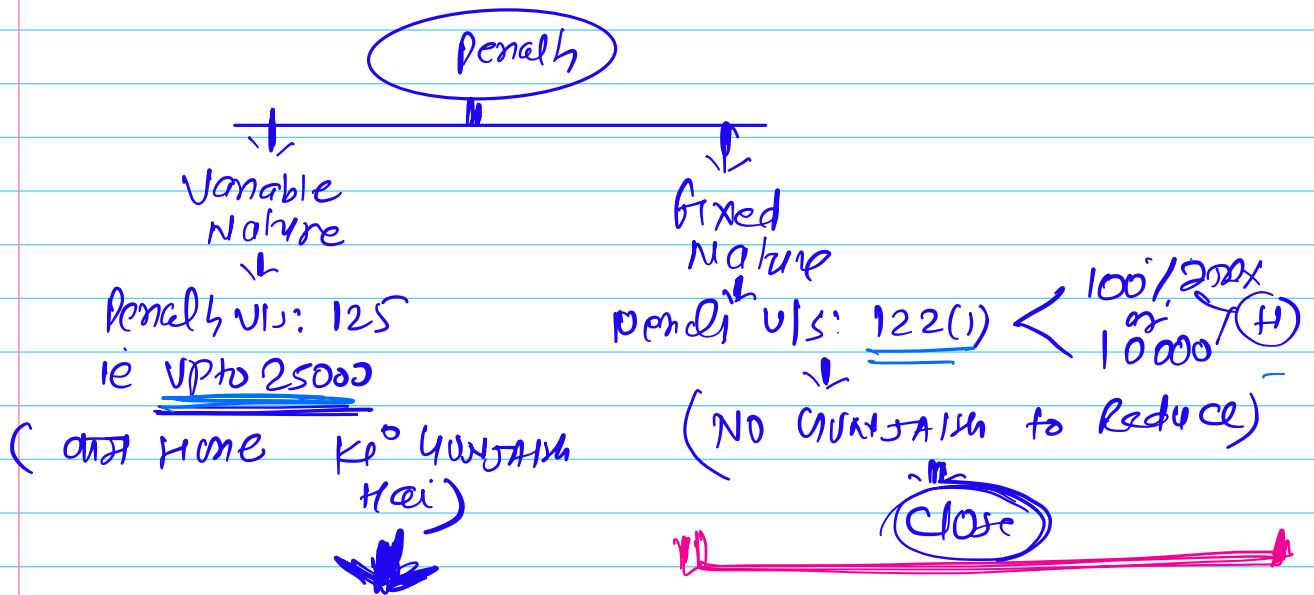 Penalty
Variable
Nature
Penalty U/s: 125
ie upto 25000
(कम Hone Ki GUNJAISH
Hai)
Fixed
Nature
Penalty U/s: 122(1)
100%
or
10000
(H)
(NO GUNJAISH to Reduce)
Close